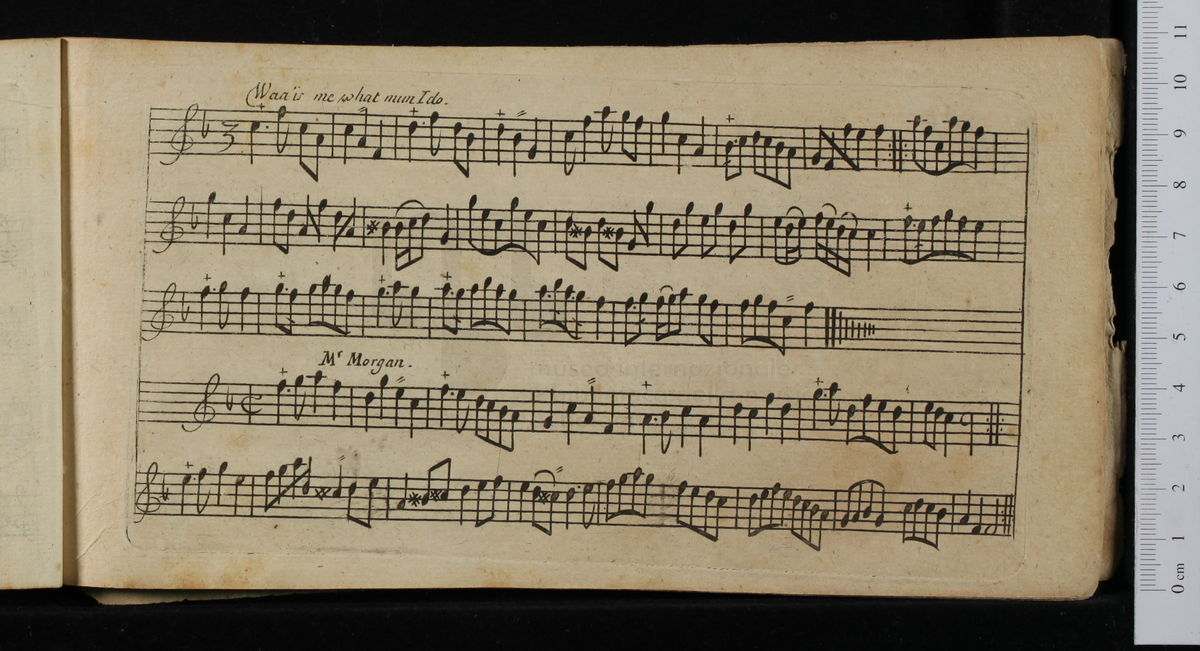 Waa is me what mun I do.
3
Mr Morgan.
museo internazionale
11
10
9
8
7
6
5
4
3
2
1
0 cm